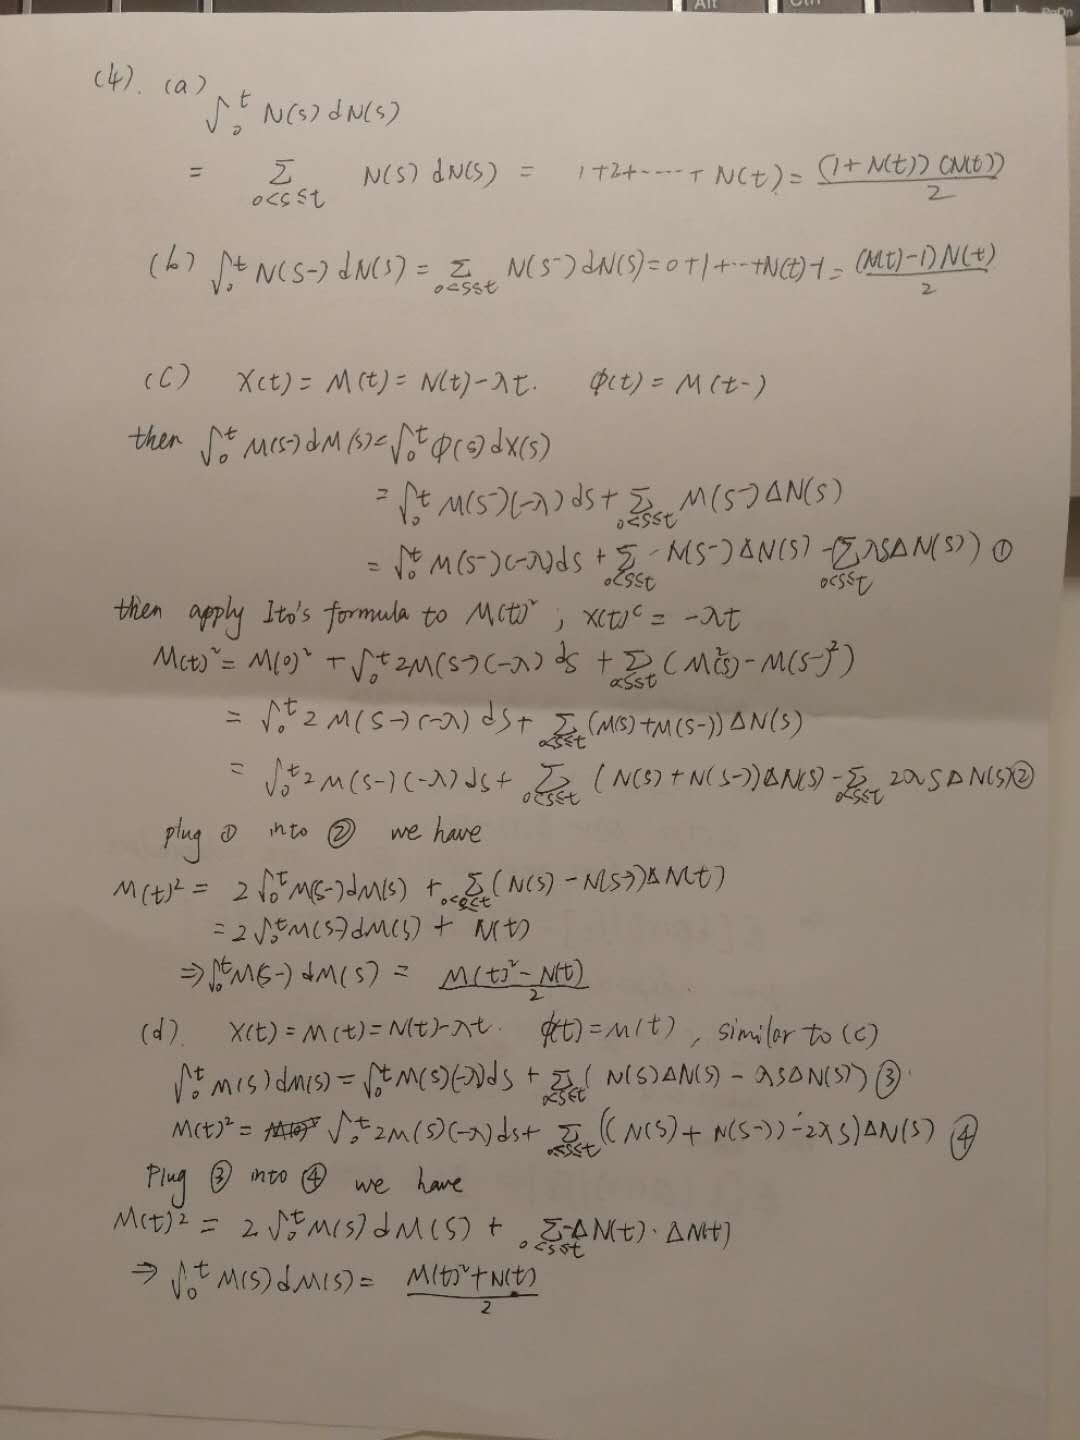 Alt Ctrl PgDn
(4). (a)
∫₀ᵗ N(s) dN(s)
= Σ_{0<s≤t} N(s) dN(s) = 1+2+·····+ N(t) = (1+N(t))(N(t)) / 2
(b) ∫₀ᵗ N(s-) dN(s) = Σ_{0<s≤t} N(s-) dN(s) = 0+1+···+N(t)-1 = (N(t)-1)N(t) / 2
(C) X(t) = M(t) = N(t)-λt. φ(t) = M(t-)
then ∫₀ᵗ M(s-)dM(s) = ∫₀ᵗ φ(s)dX(s)
= ∫₀ᵗ M(s-)(-λ)ds + Σ_{0<s≤t} M(s-)ΔN(s)
= ∫₀ᵗ M(s-)(-λ)ds + Σ_{0<s≤t} N(s-)ΔN(s) - Σ_{0<s≤t} λsΔN(s)) ①
then apply Ito's formula to M(t)², X(t)^c = -λt
M(t)² = M(0)² + ∫₀ᵗ 2M(s-)(-λ) ds + Σ_{0<s≤t} (M²(s) - M(s-)²)
= ∫₀ᵗ 2M(s-)(-λ) ds + Σ_{0<s≤t} (M(s)+M(s-))ΔN(s)
= ∫₀ᵗ 2M(s-)(-λ)ds + Σ_{0<s≤t} (N(s)+N(s-))ΔN(s) - Σ_{0<s≤t} 2λsΔN(s) ②
plug ① into ② we have
M(t)² = 2∫₀ᵗ M(s-)dM(s) + Σ_{0<s≤t} (N(s) - N(s-))ΔN(t)
= 2∫₀ᵗ M(s-)dM(s) + N(t)
⇒ ∫₀ᵗ M(s-)dM(s) = (M(t)² - N(t)) / 2
(d). X(t) = M(t) = N(t)-λt. φ(t) = M(t), similar to (c)
∫₀ᵗ M(s)dM(s) = ∫₀ᵗ M(s)(-λ)ds + Σ_{0<s≤t} (N(s)ΔN(s) - λsΔN(s)) ③.
M(t)² = ∫₀ᵗ 2M(s)(-λ)ds + Σ_{0<s≤t} ((N(s)+N(s-)) - 2λs)ΔN(s) ④
Plug ③ into ④ we have
M(t)² = 2∫₀ᵗ M(s)dM(s) + Σ_{0<s≤t} -ΔN(t)·ΔN(t)
⇒ ∫₀ᵗ M(s)dM(s) = (M(t)² + N(t)) / 2